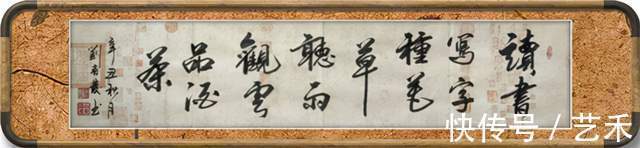 讀書
寫字
種花
草
聽雨
觀雲
品酒
茶
辛丑秋月
快传号 / 艺禾